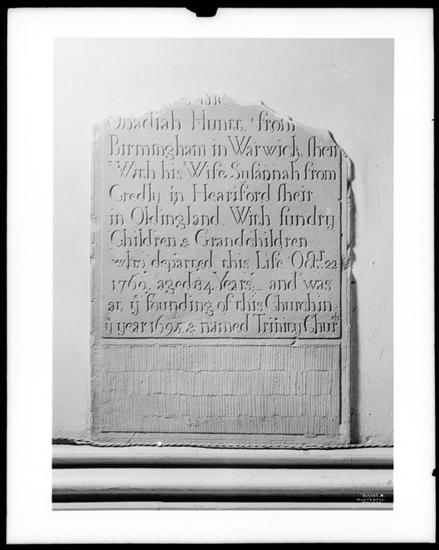 the
Obadiah Huntt, from
Birmingham in Warwick sheir
With his Wife Susannah from
Credly in Heariford sheir
in Oldingland, With sundry
Children & Grandchildren
who departed this Life Oct. 22
1760, aged 84 Years, and was
at ye founding of this Church in
ye year 1695 & named Trinity Church